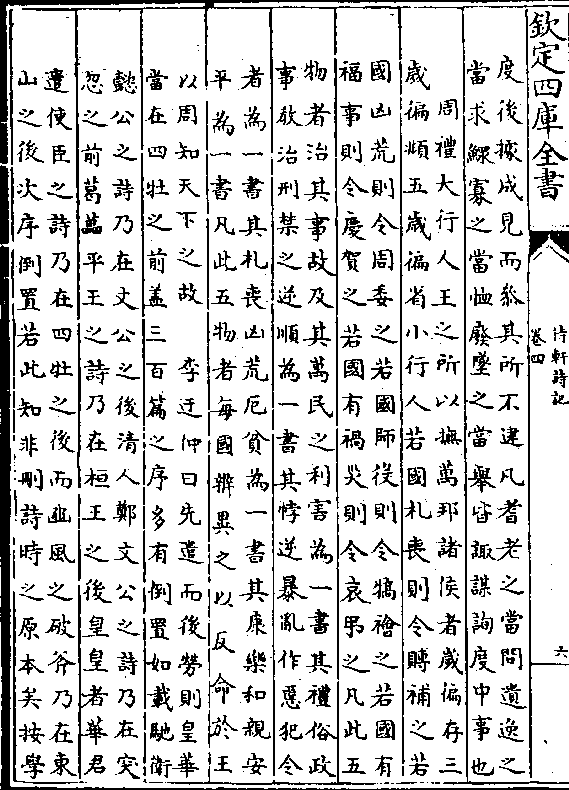 欽定四庫全書
待軒詩記
卷四
六
度後據成見而叅其所不逮凡耆老之當問遺逸之
當求鰥寡之當恤廢墜之當舉皆諏謀詢度中事也
周禮大行人王之所以撫萬邦諸侯者歲徧存三
歲徧頫五歲徧省小行人若國札喪則令賻補之若
國凶荒則令周委之若國師役則令犒禬之若國有
福事則令慶賀之若國有禍災則令哀弔之凡此五
物者治其事故及其萬民之利害為一書其禮俗政
事敎治刑禁之逆順為一書其悖逆暴亂作慝犯令
者為一書其札喪凶荒厄貧為一書其康樂和親安
平為一書凡此五物者每國辨異之以反命於王
以周知天下之故　李迂仲曰先遣而後勞則皇華
當在四牡之前盖三百篇之序多有倒置如載馳衛
懿公之詩乃在文公之後清人鄭文公之詩乃在突
忽之前葛藟平王之詩乃在桓王之後皇皇者華君
遣使臣之詩乃在四牡之後而豳風之破斧乃在東
山之後次序倒置若此知非刪詩時之原本矣按學